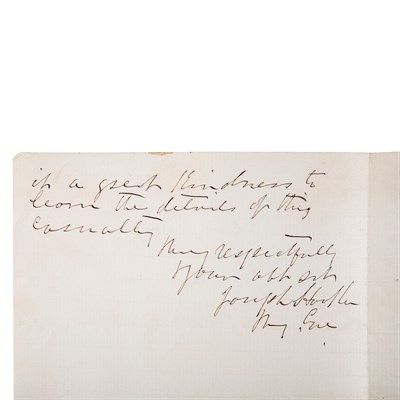 it a great Kindness to
learn the details of this
casualty
Very respectfully
Your obt svt
Joseph Hooker
Maj. Gnl.